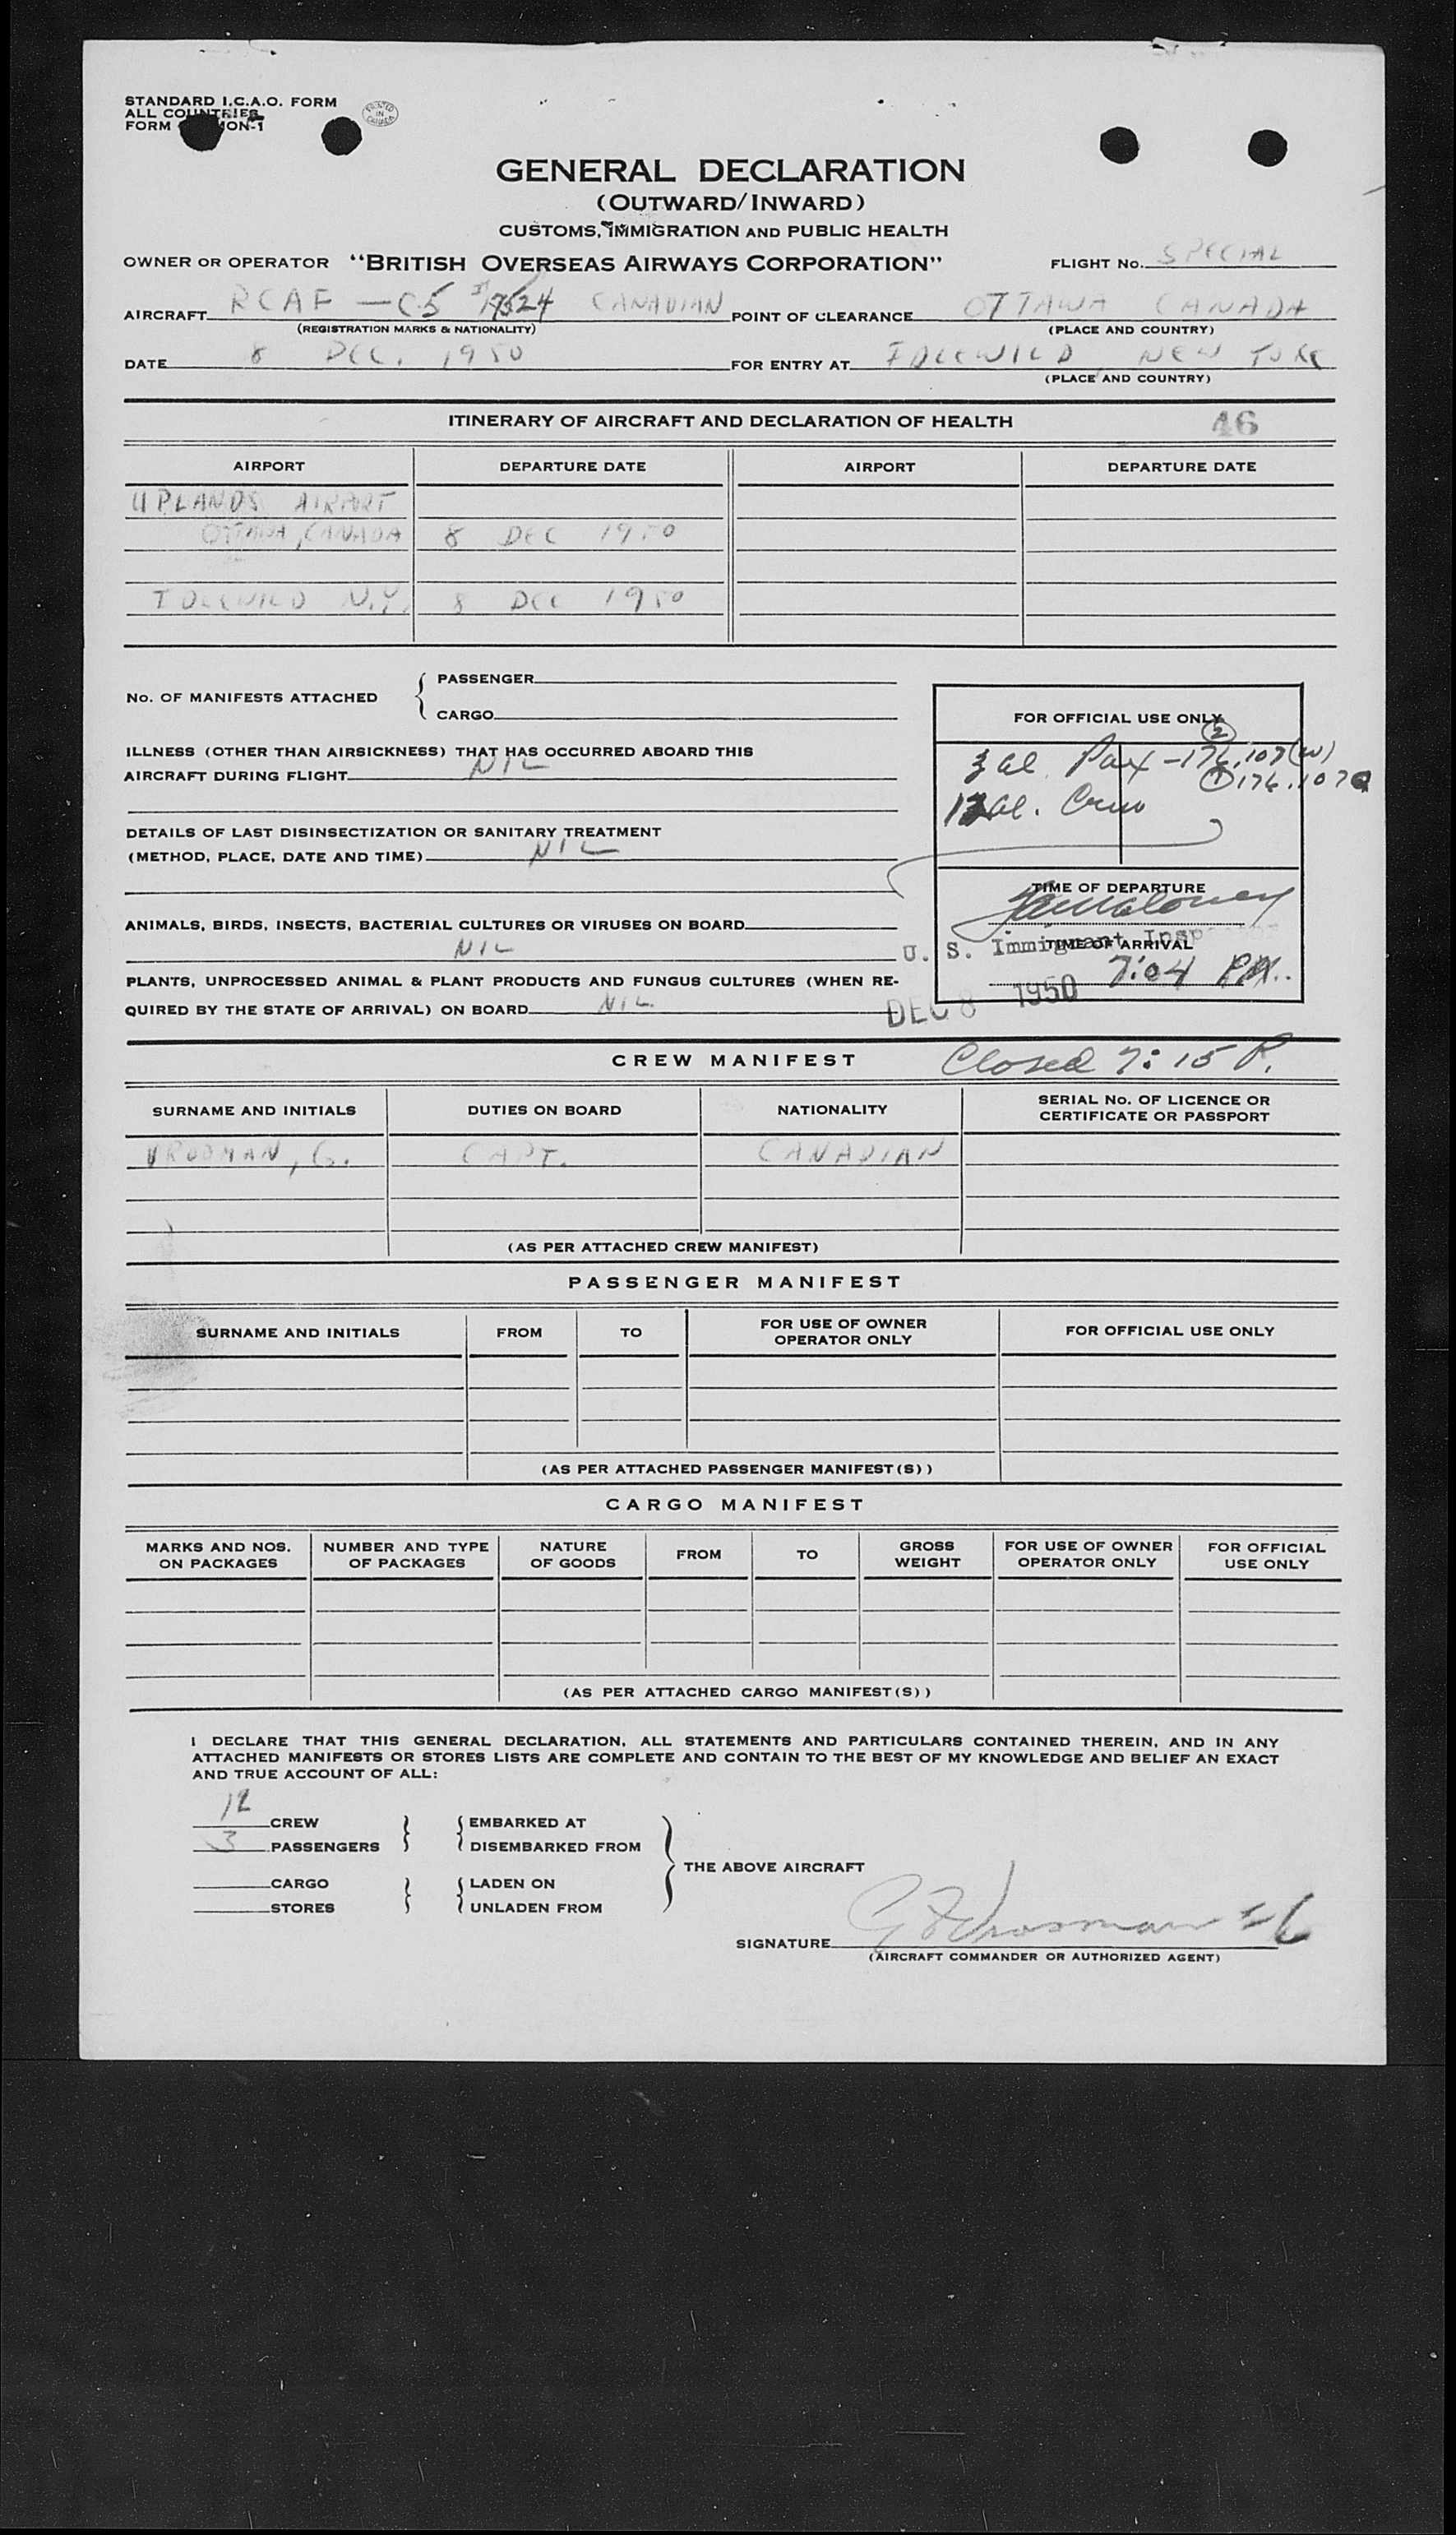 STANDARD I.C.A.O. FORM
ALL COUNTRIES
FORM MON-1
PRINTED IN CANADA
GENERAL DECLARATION
(OUTWARD/INWARD)
CUSTOMS, IMMIGRATION AND PUBLIC HEALTH
OWNER OR OPERATOR "BRITISH OVERSEAS AIRWAYS CORPORATION" FLIGHT No. SPECIAL
AIRCRAFT RCAF — C5 17524 CANADIAN POINT OF CLEARANCE OTTAWA CANADA
(REGISTRATION MARKS & NATIONALITY) (PLACE AND COUNTRY)
DATE 8 DEC. 1950 FOR ENTRY AT IDLEWILD NEW YORK
(PLACE AND COUNTRY)
ITINERARY OF AIRCRAFT AND DECLARATION OF HEALTH 46
AIRPORT DEPARTURE DATE AIRPORT DEPARTURE DATE
UPLANDS AIRPORT
OTTAWA, CANADA 8 DEC 1950
IDLEWILD N.Y. 8 DEC 1950
No. OF MANIFESTS ATTACHED { PASSENGER
CARGO
FOR OFFICIAL USE ONLY
2
3 al. Pax - 176.107(w)
1 176.107a
12 al. Crew
ILLNESS (OTHER THAN AIRSICKNESS) THAT HAS OCCURRED ABOARD THIS
AIRCRAFT DURING FLIGHT NIL
DETAILS OF LAST DISINSECTIZATION OR SANITARY TREATMENT
(METHOD, PLACE, DATE AND TIME) NIL
TIME OF DEPARTURE
ANIMALS, BIRDS, INSECTS, BACTERIAL CULTURES OR VIRUSES ON BOARD
NIL
U. S. Immigrant Insp
TIME OF ARRIVAL
7:04 PM.
PLANTS, UNPROCESSED ANIMAL & PLANT PRODUCTS AND FUNGUS CULTURES (WHEN RE-
QUIRED BY THE STATE OF ARRIVAL) ON BOARD NIL
DEC 8 1950
CREW MANIFEST Closed 7:15 P.
SURNAME AND INITIALS DUTIES ON BOARD NATIONALITY SERIAL No. OF LICENCE OR
CERTIFICATE OR PASSPORT
G. CAPT. CANADIAN
(AS PER ATTACHED CREW MANIFEST)
PASSENGER MANIFEST
SURNAME AND INITIALS FROM TO FOR USE OF OWNER
OPERATOR ONLY FOR OFFICIAL USE ONLY
(AS PER ATTACHED PASSENGER MANIFEST(S))
CARGO MANIFEST
MARKS AND NOS.
ON PACKAGES NUMBER AND TYPE
OF PACKAGES NATURE
OF GOODS FROM TO GROSS
WEIGHT FOR USE OF OWNER
OPERATOR ONLY FOR OFFICIAL
USE ONLY
(AS PER ATTACHED CARGO MANIFEST(S))
I DECLARE THAT THIS GENERAL DECLARATION, ALL STATEMENTS AND PARTICULARS CONTAINED THEREIN, AND IN ANY
ATTACHED MANIFESTS OR STORES LISTS ARE COMPLETE AND CONTAIN TO THE BEST OF MY KNOWLEDGE AND BELIEF AN EXACT
AND TRUE ACCOUNT OF ALL:
12 CREW { EMBARKED AT
3 PASSENGERS DISEMBARKED FROM
THE ABOVE AIRCRAFT
CARGO { LADEN ON
STORES UNLADEN FROM
SIGNATURE
(AIRCRAFT COMMANDER OR AUTHORIZED AGENT)